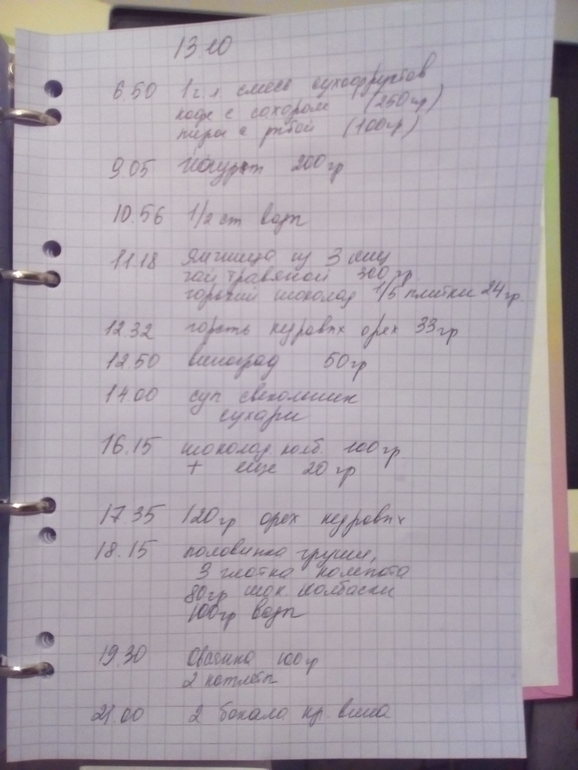 13.10
6.50 1 г.л. смесь сухофруктов
кофе с сахаром (250 гр)
пирог с рыбой (100гр)
9.05 Йогурт 200 гр
10.56 1/2 ст воды
11.18 Яичница из 3 яиц
чай травяной 300 гр.
горький шоколад 1/5 плитки 24 гр
12.32 горсть кедровых орех 33 гр
12.50 виноград 50 гр
14.00 суп свекольник
сухари
16.15 шоколад. колб. 100 гр
+ еще 20 гр
17.35 120 гр орех кедровых
18.15 половинка груши,
3 глотка компота
80гр шок. колбаски
100гр воды
19.30 Овсянка 100 гр
2 котлеты
21.00 2 бокала кр. вина